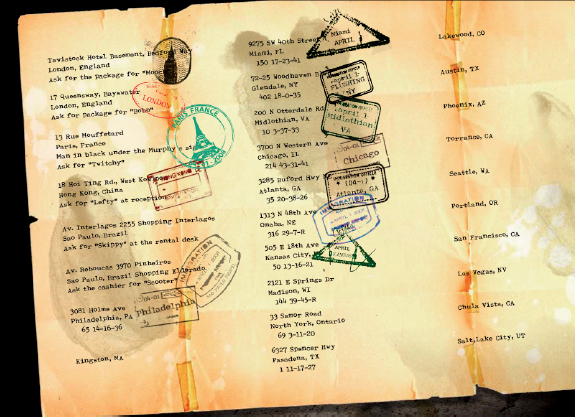 Tavistock Hotel Basement, Bedford Wa
London, England
Ask for the Package for "Mooc
17 Queensway, Bayswater
London, England
Ask for Package for "Bobo"
LONDON
13 Rue Mouffetard
Paris, France
Man in black under the Murphy's si
Ask for "Twitchy"
PARIS FRANCE
18 Hoi Ting Rd., West Kowloon
Hong Kong, China
Ask for "Lefty" at reception
HONG KONG
Av. Interlagos 2255 Shopping Interlagos
Sao Paulo, Brazil
Ask for "Skippy" at the rental desk
Av. Reboucas 3970 Pinheiros
Sao Paulo, Brazil Shopping Eldorado
Ask the cashier for "Scooter"
IMMIGRATION
3081 Holme Ave
Philadelphia, PA
65 14-16-36
Philadelphia
Kingston, MA
9275 SW 40th Street
Miami, FL
150 17-23-41
Miami
APRIL
72-25 Woodhaven B
Glendale, NY
402 18-0-35
April 1
FLUSHING
NY
200 N Otterdale Rd
Midlothian, VA
10 3-37-33
April 1
Midlothian
VA
3700 N Western Ave
Chicago, IL
214 43-31-41
Chicago
3285 Buford Hwy
Atlanta, GA
35 20-38-26
Atlanta, GA
1313 N 48th Ave
Omaha, NE
316 29-7-R
IMMIGRATION
505 E 18th Ave
Kansas City,
50 13-16-21
APRIL
2121 E Springs Dr
Madison, WI
144 39-45-R
33 Samor Road
North York, Ontario
69 3-11-20
6327 Spencer Hwy
Pasadena, TX
1 11-17-27
Lakewood, CO
Austin, TX
Phoenix, AZ
Torrance, CA
Seattle, WA
Portland, OR
San Francisco, CA
Las Vegas, NV
Chula Vista, CA
Salt Lake City, UT